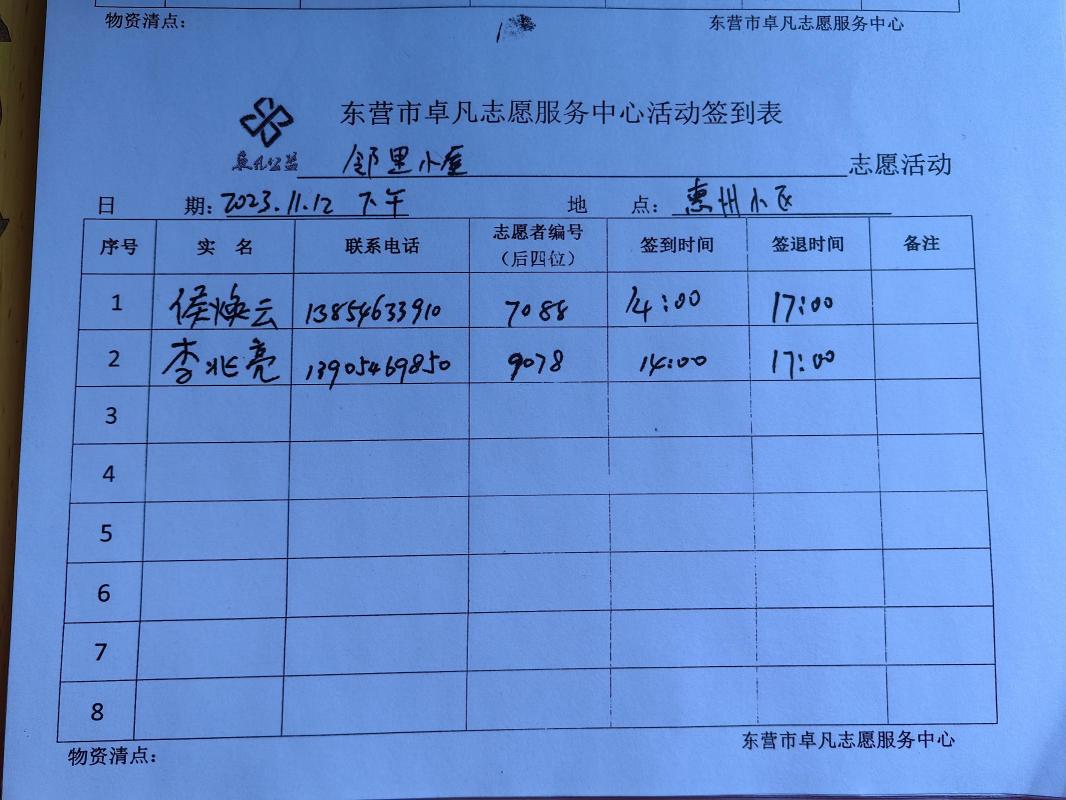 物资清点： 东营市卓凡志愿服务中心
东营市卓凡志愿服务中心活动签到表
卓凡公益 邻里小屋 志愿活动
日 期：2023.11.12 下午 地 点：惠州小区
序号 实 名 联系电话 志愿者编号（后四位） 签到时间 签退时间 备注
1 侯焕云 13854633910 7088 14:00 17:00
2 李兆亮 13905469850 9078 14:00 17:00
3
4
5
6
7
8
物资清点： 东营市卓凡志愿服务中心